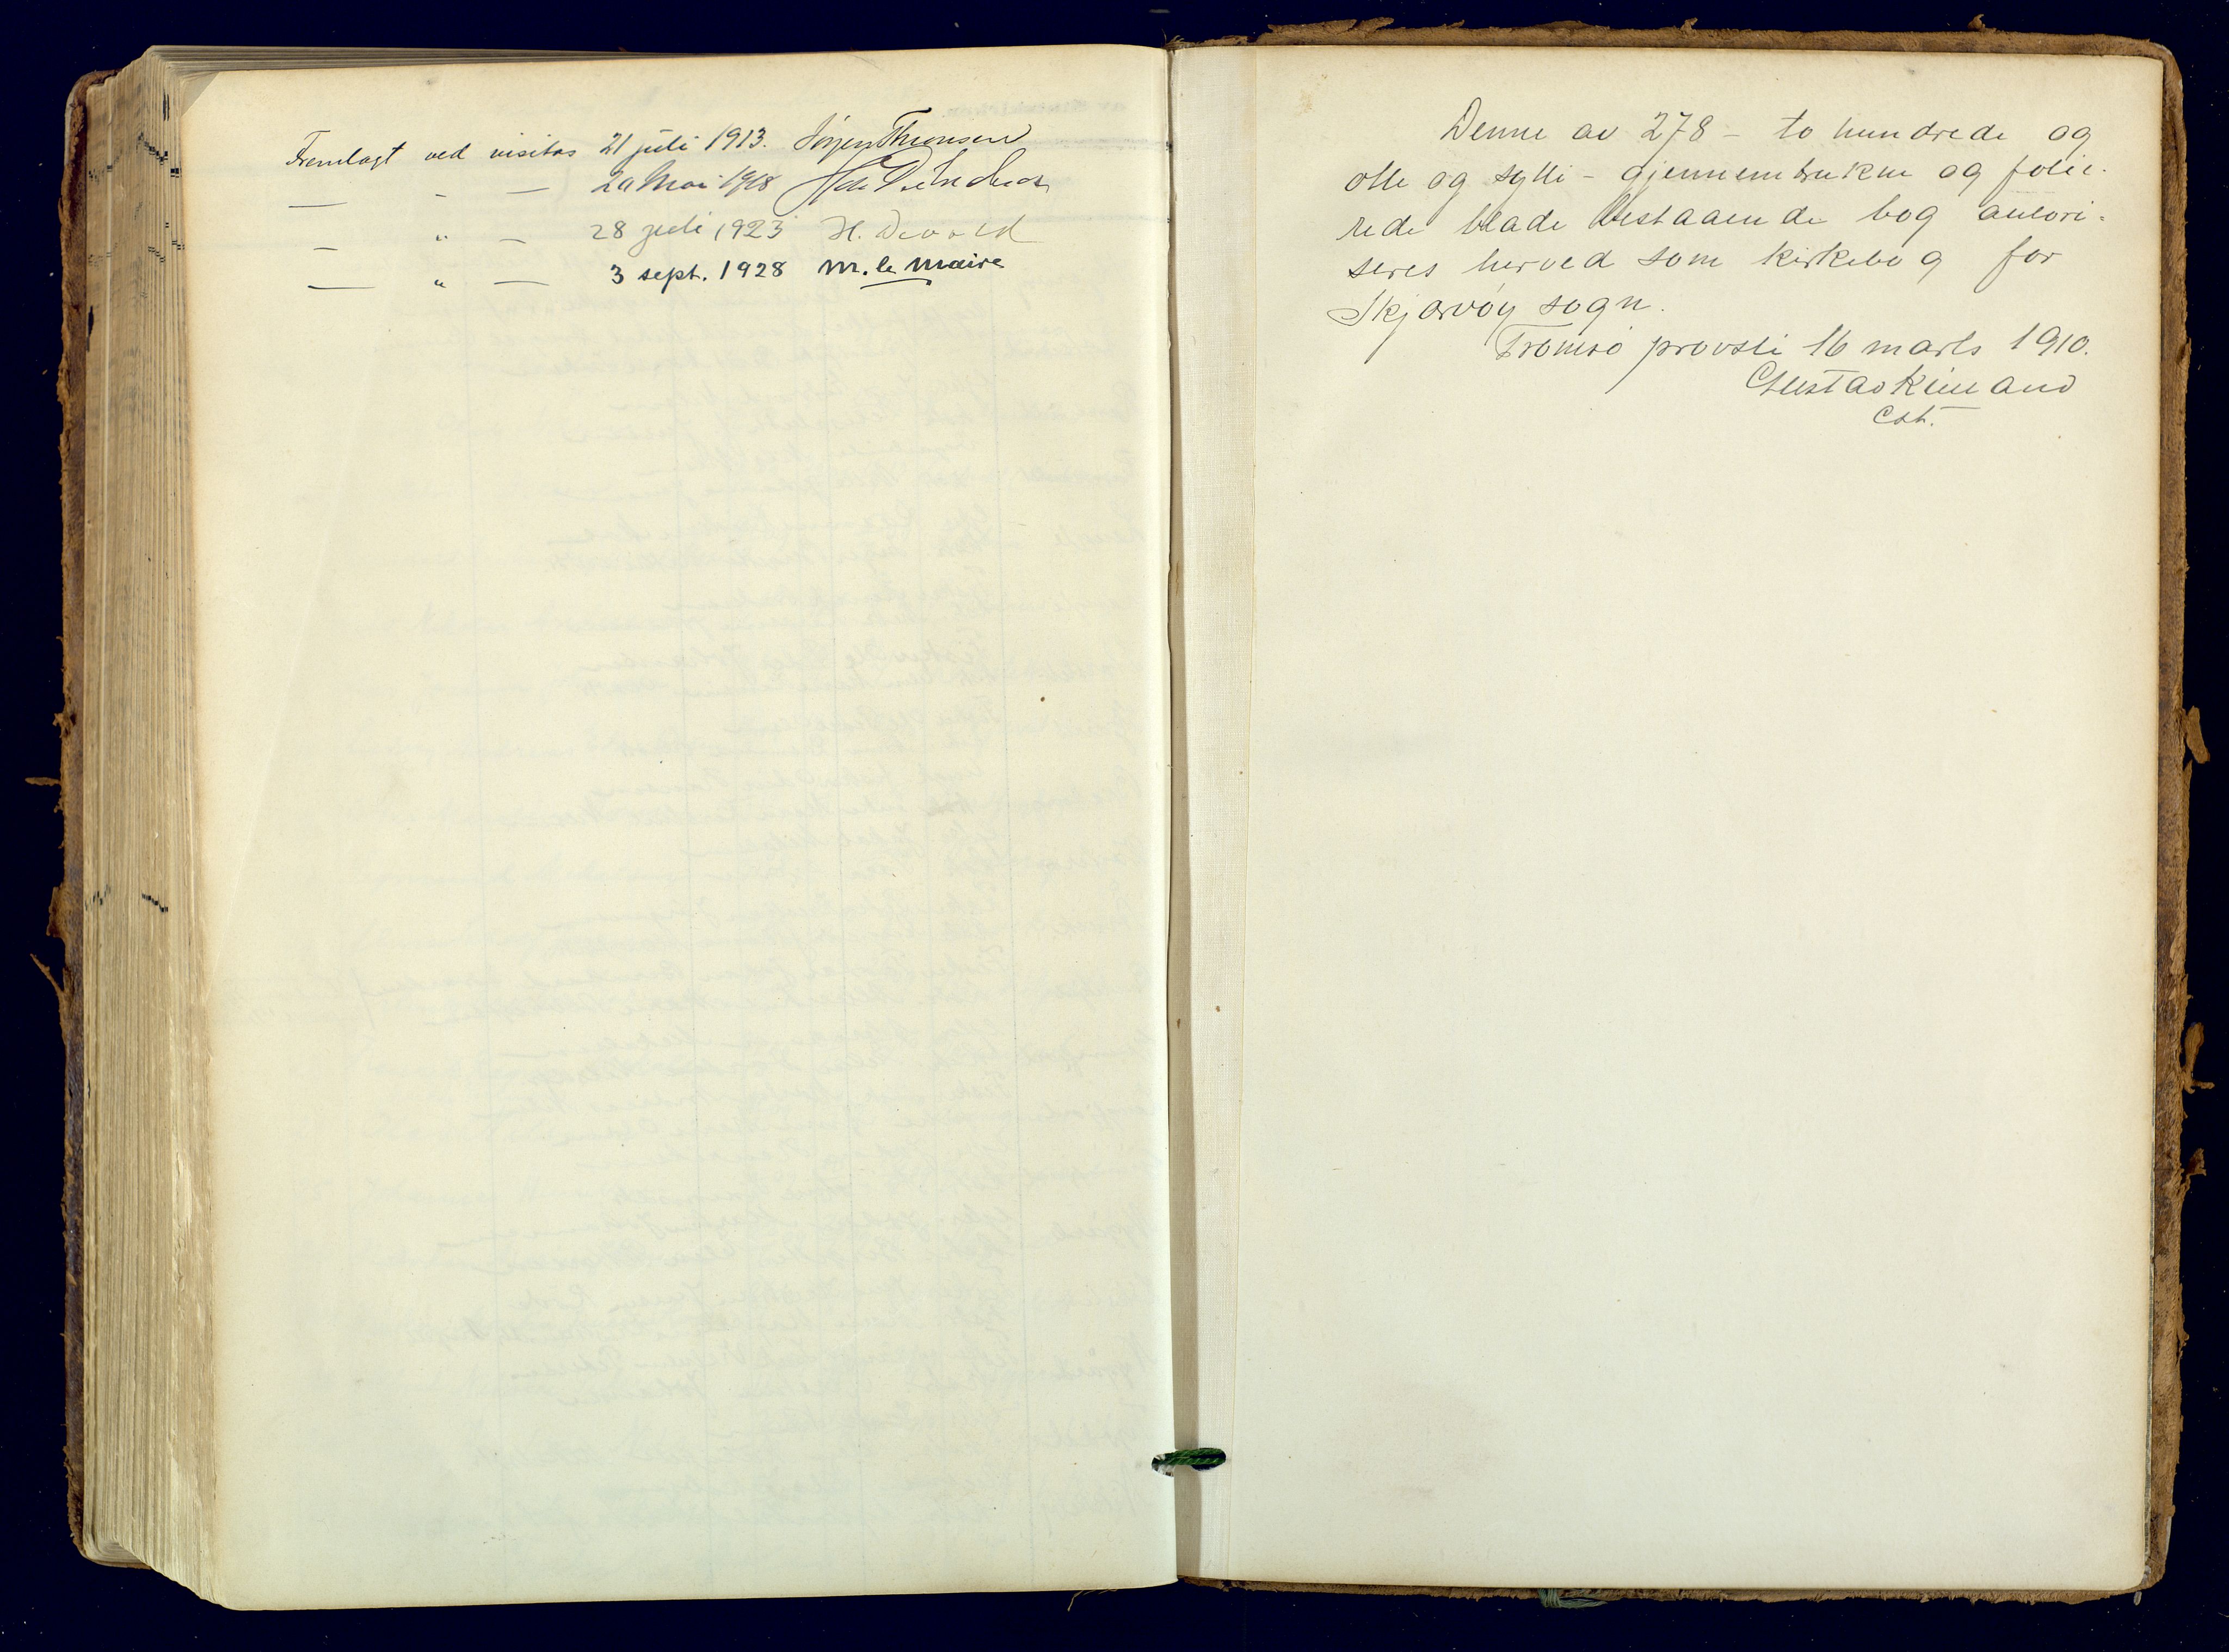 Fremlagt ved visitas 21 juli 1913. Jörgen Thomsen
— - — 20 Mai 1918
— " — 28 juli 1923 H. Devold
— " — 3 sept. 1928 M. le Maire
Denne av 278 - to hundrede og
otte og sytti - gjennemtrukne og folie-
rede blade bestaaende bog autori-
seres herved som kirkebog for
Skjærvøy sogn.
Tromsø provsti 16 marts 1910.
Gustav
cst.